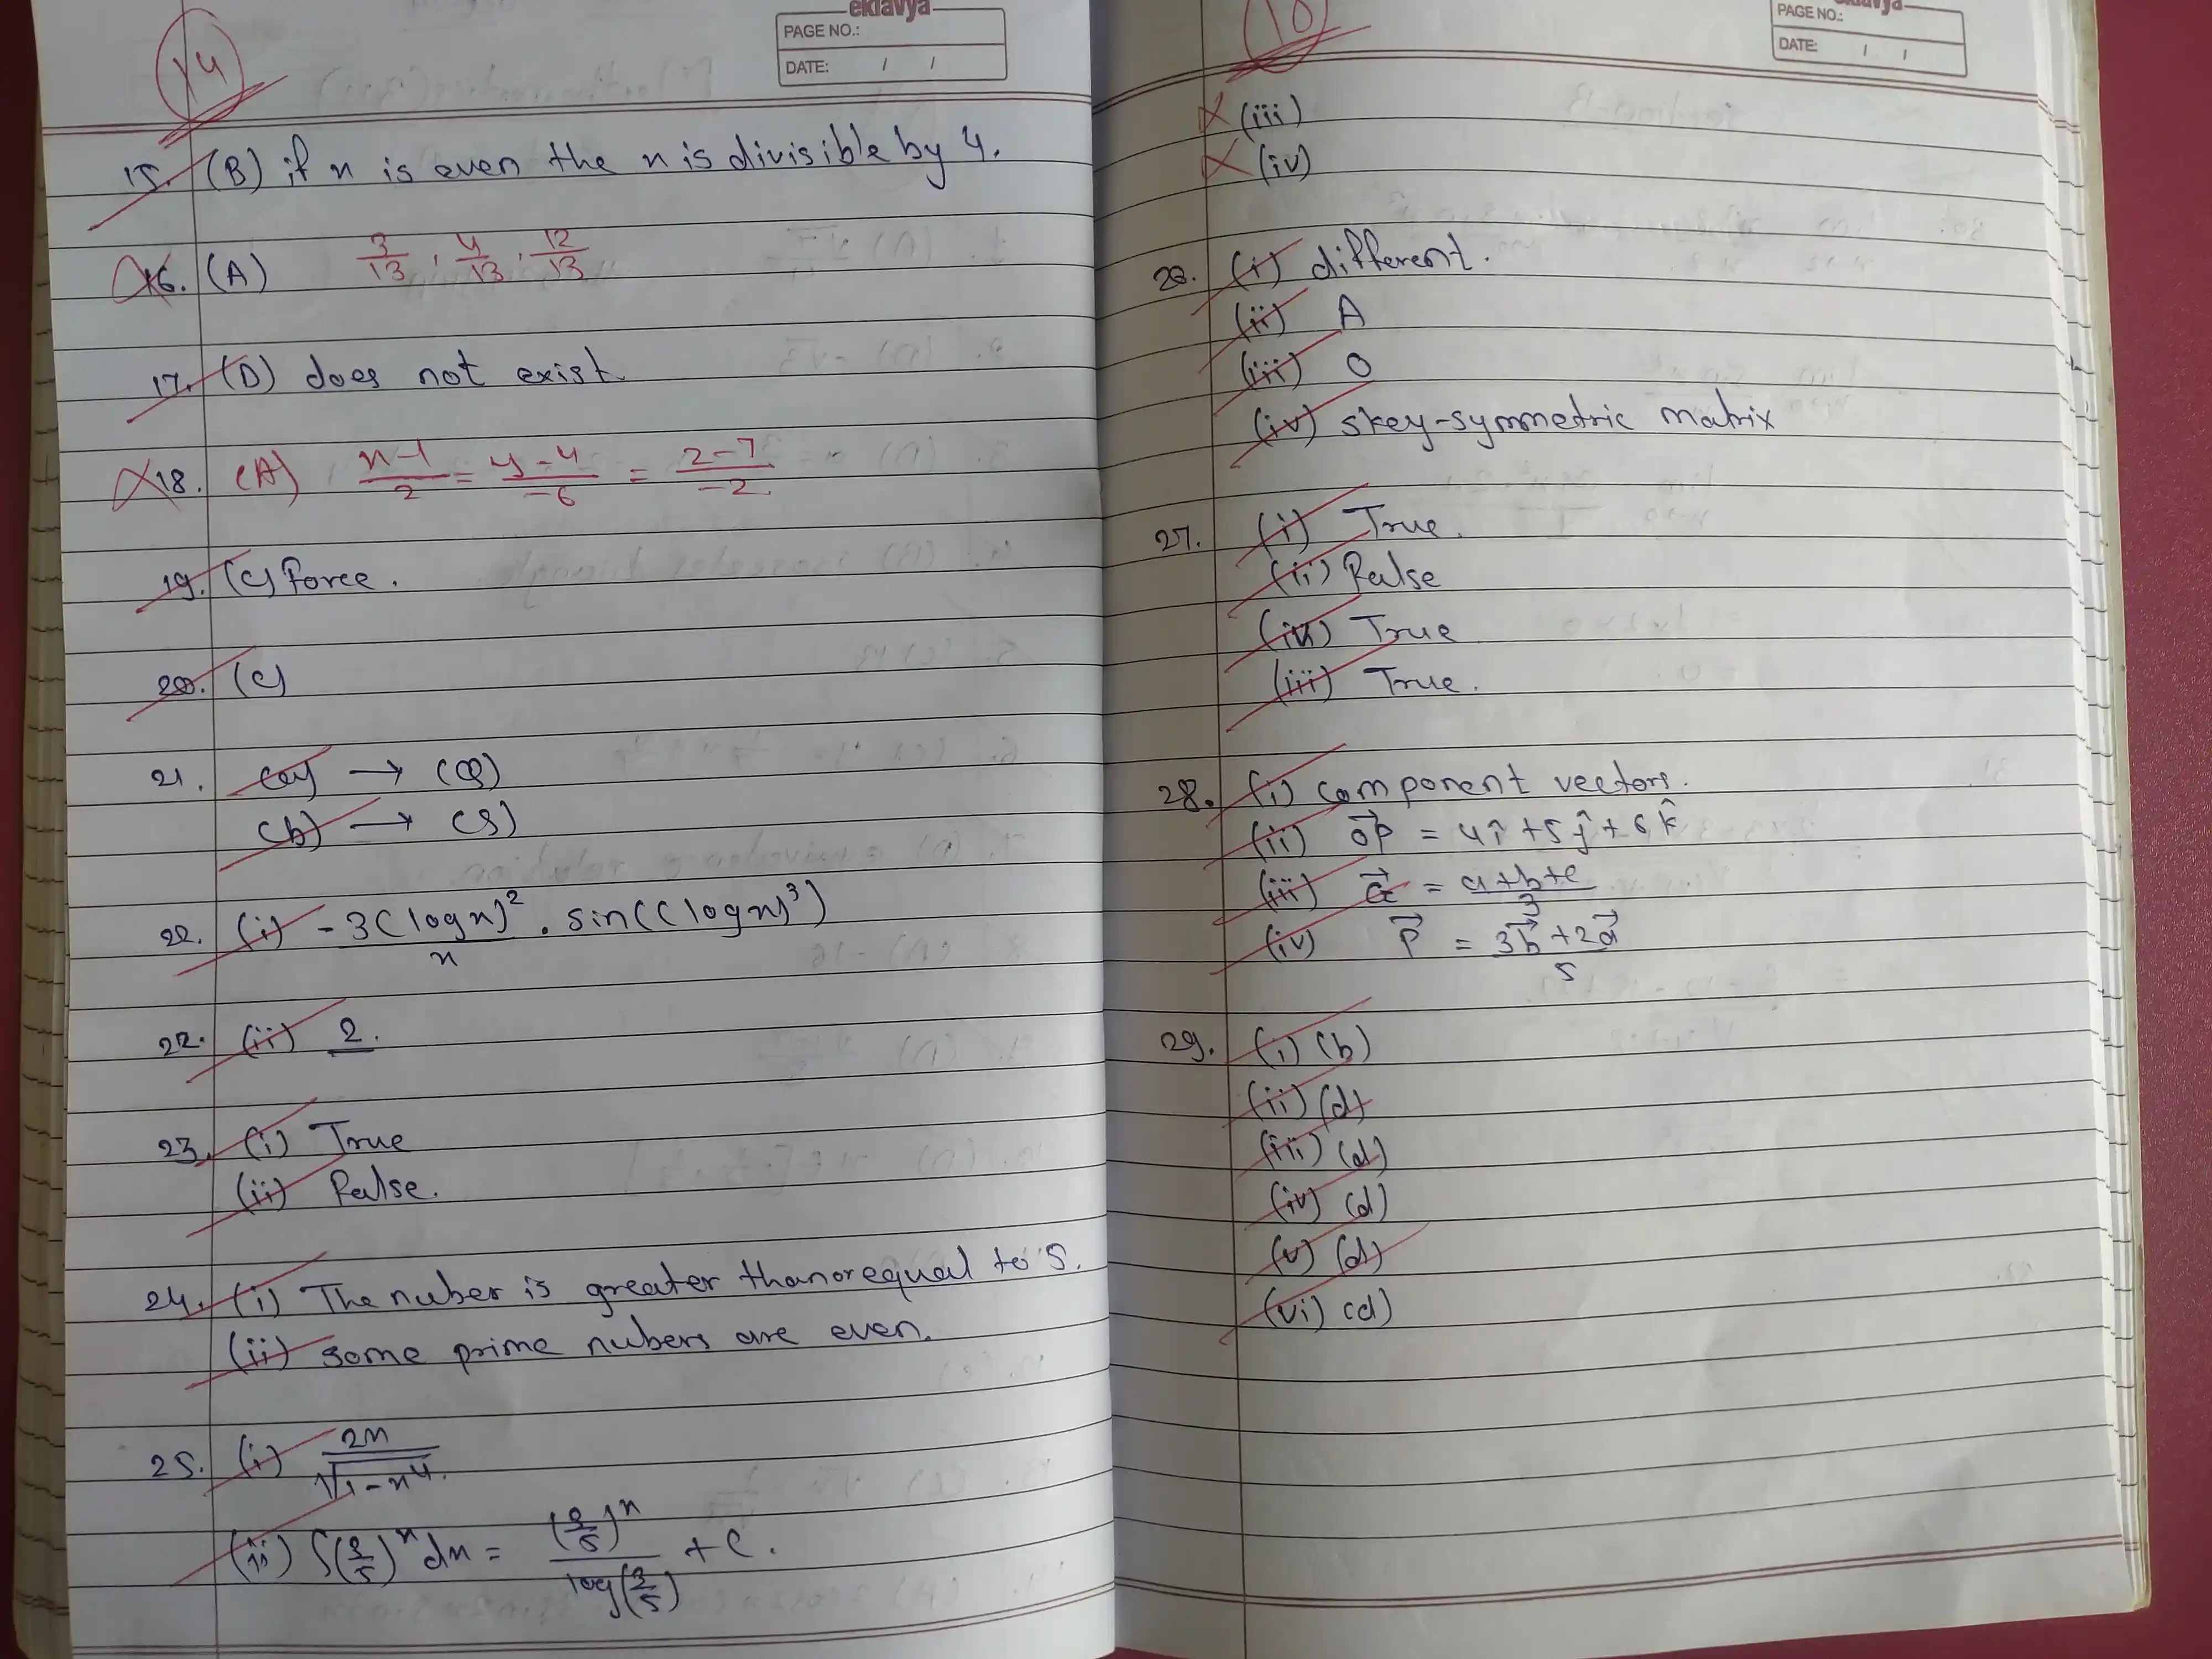 14
eklavya
PAGE NO.:
DATE: / /
15. (B) if n is even the n is divisible by 4.
16. (A) 3/13, 4/13, 12/13
17. (D) does not exist
18. (A) n-1/2 = y-4/-6 = z-7/-2.
19. (C) Force.
20. (C)
21. (a) → (Q)
(b) → (S)
22. (i) -3(logn)²/n . sin((logn)³)
22. (ii) 2.
23. (i) True
(ii) False.
24. (i) The nuber is greater than or equal to 5.
(ii) some prime nubers are even.
25. (i) 2n/√1-n⁴.
(ii) ∫(3/5)ⁿ dn = (3/5)ⁿ/log(3/5) + C.
10
PAGE NO.:
DATE: / /
(iii)
(iv)
26. (i) different.
(ii) A
(iii) 0
(iv) skey-symmetric matrix
27. (i) True.
(ii) False
(iv) True
(iii) True.
28. (i) component vectors.
(ii) OP⃗ = 4î + 5ĵ + 6k̂
(iii) G⃗ = a+b+c/3
(iv) P⃗ = 3b⃗+2a⃗/5
29. (i) (b)
(ii) (d)
(iii) (d)
(iv) (d)
(v) (d)
(vi) (d)